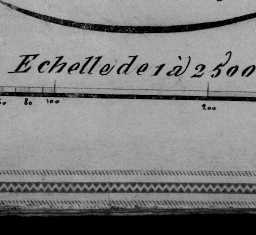 Echelle de 1 à 2500
80 100 200